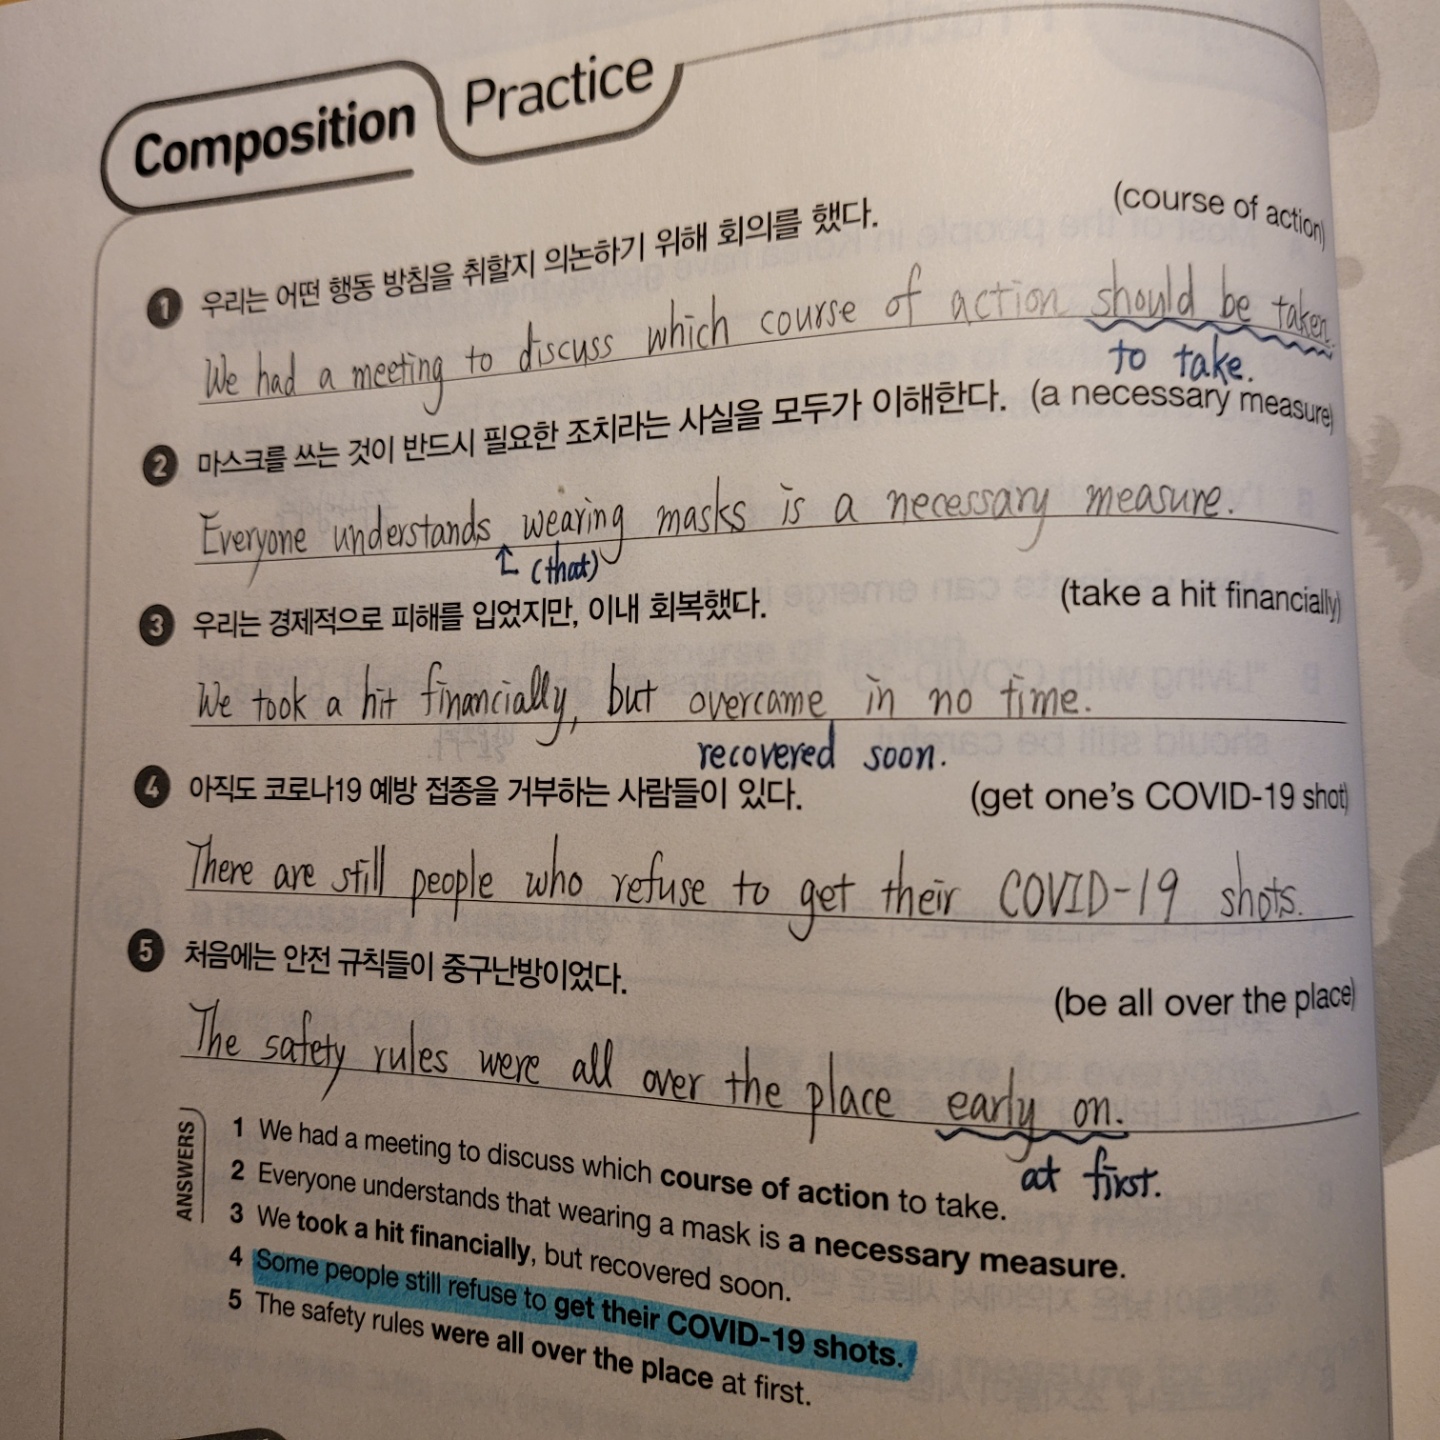 Composition Practice
(course of action)
1 우리는 어떤 행동 방침을 취할지 의논하기 위해 회의를 했다.
We had a meeting to discuss which course of action should be taken.
to take.
2 마스크를 쓰는 것이 반드시 필요한 조치라는 사실을 모두가 이해한다. (a necessary measure)
Everyone understands wearing masks is a necessary measure.
(that)
3 우리는 경제적으로 피해를 입었지만, 이내 회복했다. (take a hit financially)
We took a hit financially, but overcame in no time.
recovered soon.
4 아직도 코로나19 예방 접종을 거부하는 사람들이 있다. (get one's COVID-19 shot)
There are still people who refuse to get their COVID-19 shots.
5 처음에는 안전 규칙들이 중구난방이었다. (be all over the place)
The safety rules were all over the place early on.
at first.
ANSWERS
1 We had a meeting to discuss which course of action to take.
2 Everyone understands that wearing a mask is a necessary measure.
3 We took a hit financially, but recovered soon.
4 Some people still refuse to get their COVID-19 shots.
5 The safety rules were all over the place at first.